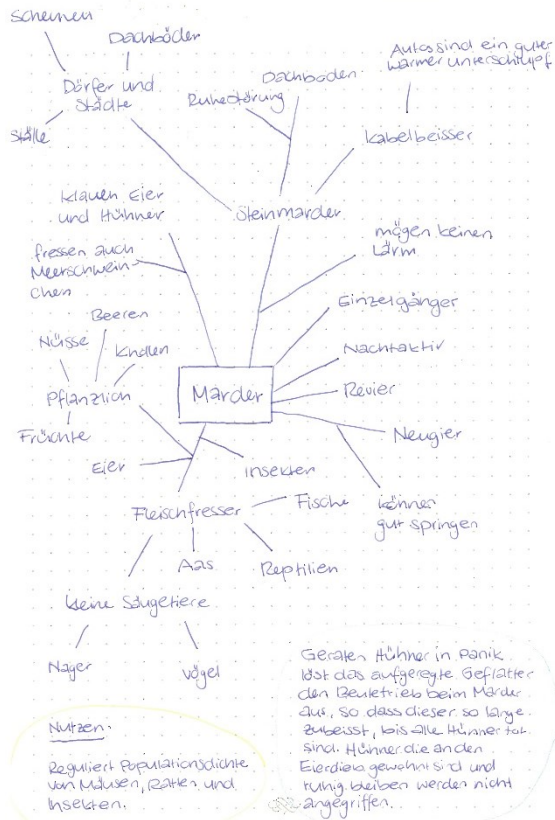 Scheunen
Dachböden
Dörfer und
Städte
Ställe
Dachboden
Ruhestörung
Autos sind ein guter
warmer unterschlupf
Kabelbeisser
Steinmarder
klauen Eier
und Hühner
fressen auch
Meerschwein-
chen
mögen keinen
Lärm
Einzelgänger
Nachtaktiv
Revier
Neugier
können
gut springen
Marder
Beeren
Nüsse
Pflanzlich
Früchte
Eier
Insekten
Fleischfresser
Fische
Aas
Reptilien
kleine Säugetiere
Nager
Vögel
Nutzen.
Reguliert Populationsdichte
von Mäusen, Ratten und
Insekten.
Geraten Hühner in Panik
löst das aufgeregte Geflatter
den Beutetrieb beim Marder
aus, so dass dieser so lange
zubeisst, bis alle Hühner tot
sind. Hühner die an den
Eierdieb gewöhnt sind und
ruhig bleiben werden nicht
angegriffen.